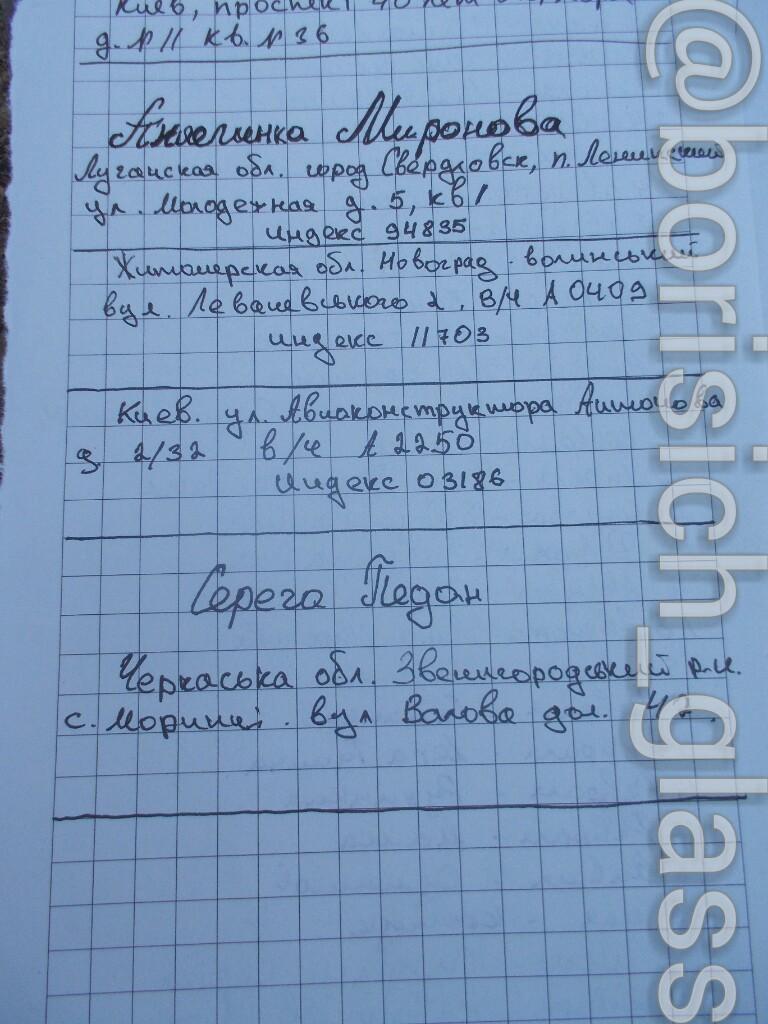 Киев, проспект 40 лет
д. № 11 кв. № 36
Анжелинка Миронова
Луганская обл. город Свердловск, п. Ленинский
ул. Молодежная д. 5, кв 1
индекс 94835
Житомерская обл. Новоград-волинський
вул. Леваневського 2, в/ч А 0409
индекс 11703
Киев. ул. Авиаконструктора Антонова
д 2/32 в/ч А 2250
индекс 03186
Серега Педан
Черкаська обл. Звенигородський р-н.
с. Моринці. вул Валова дом. 42.
@borisich_glass